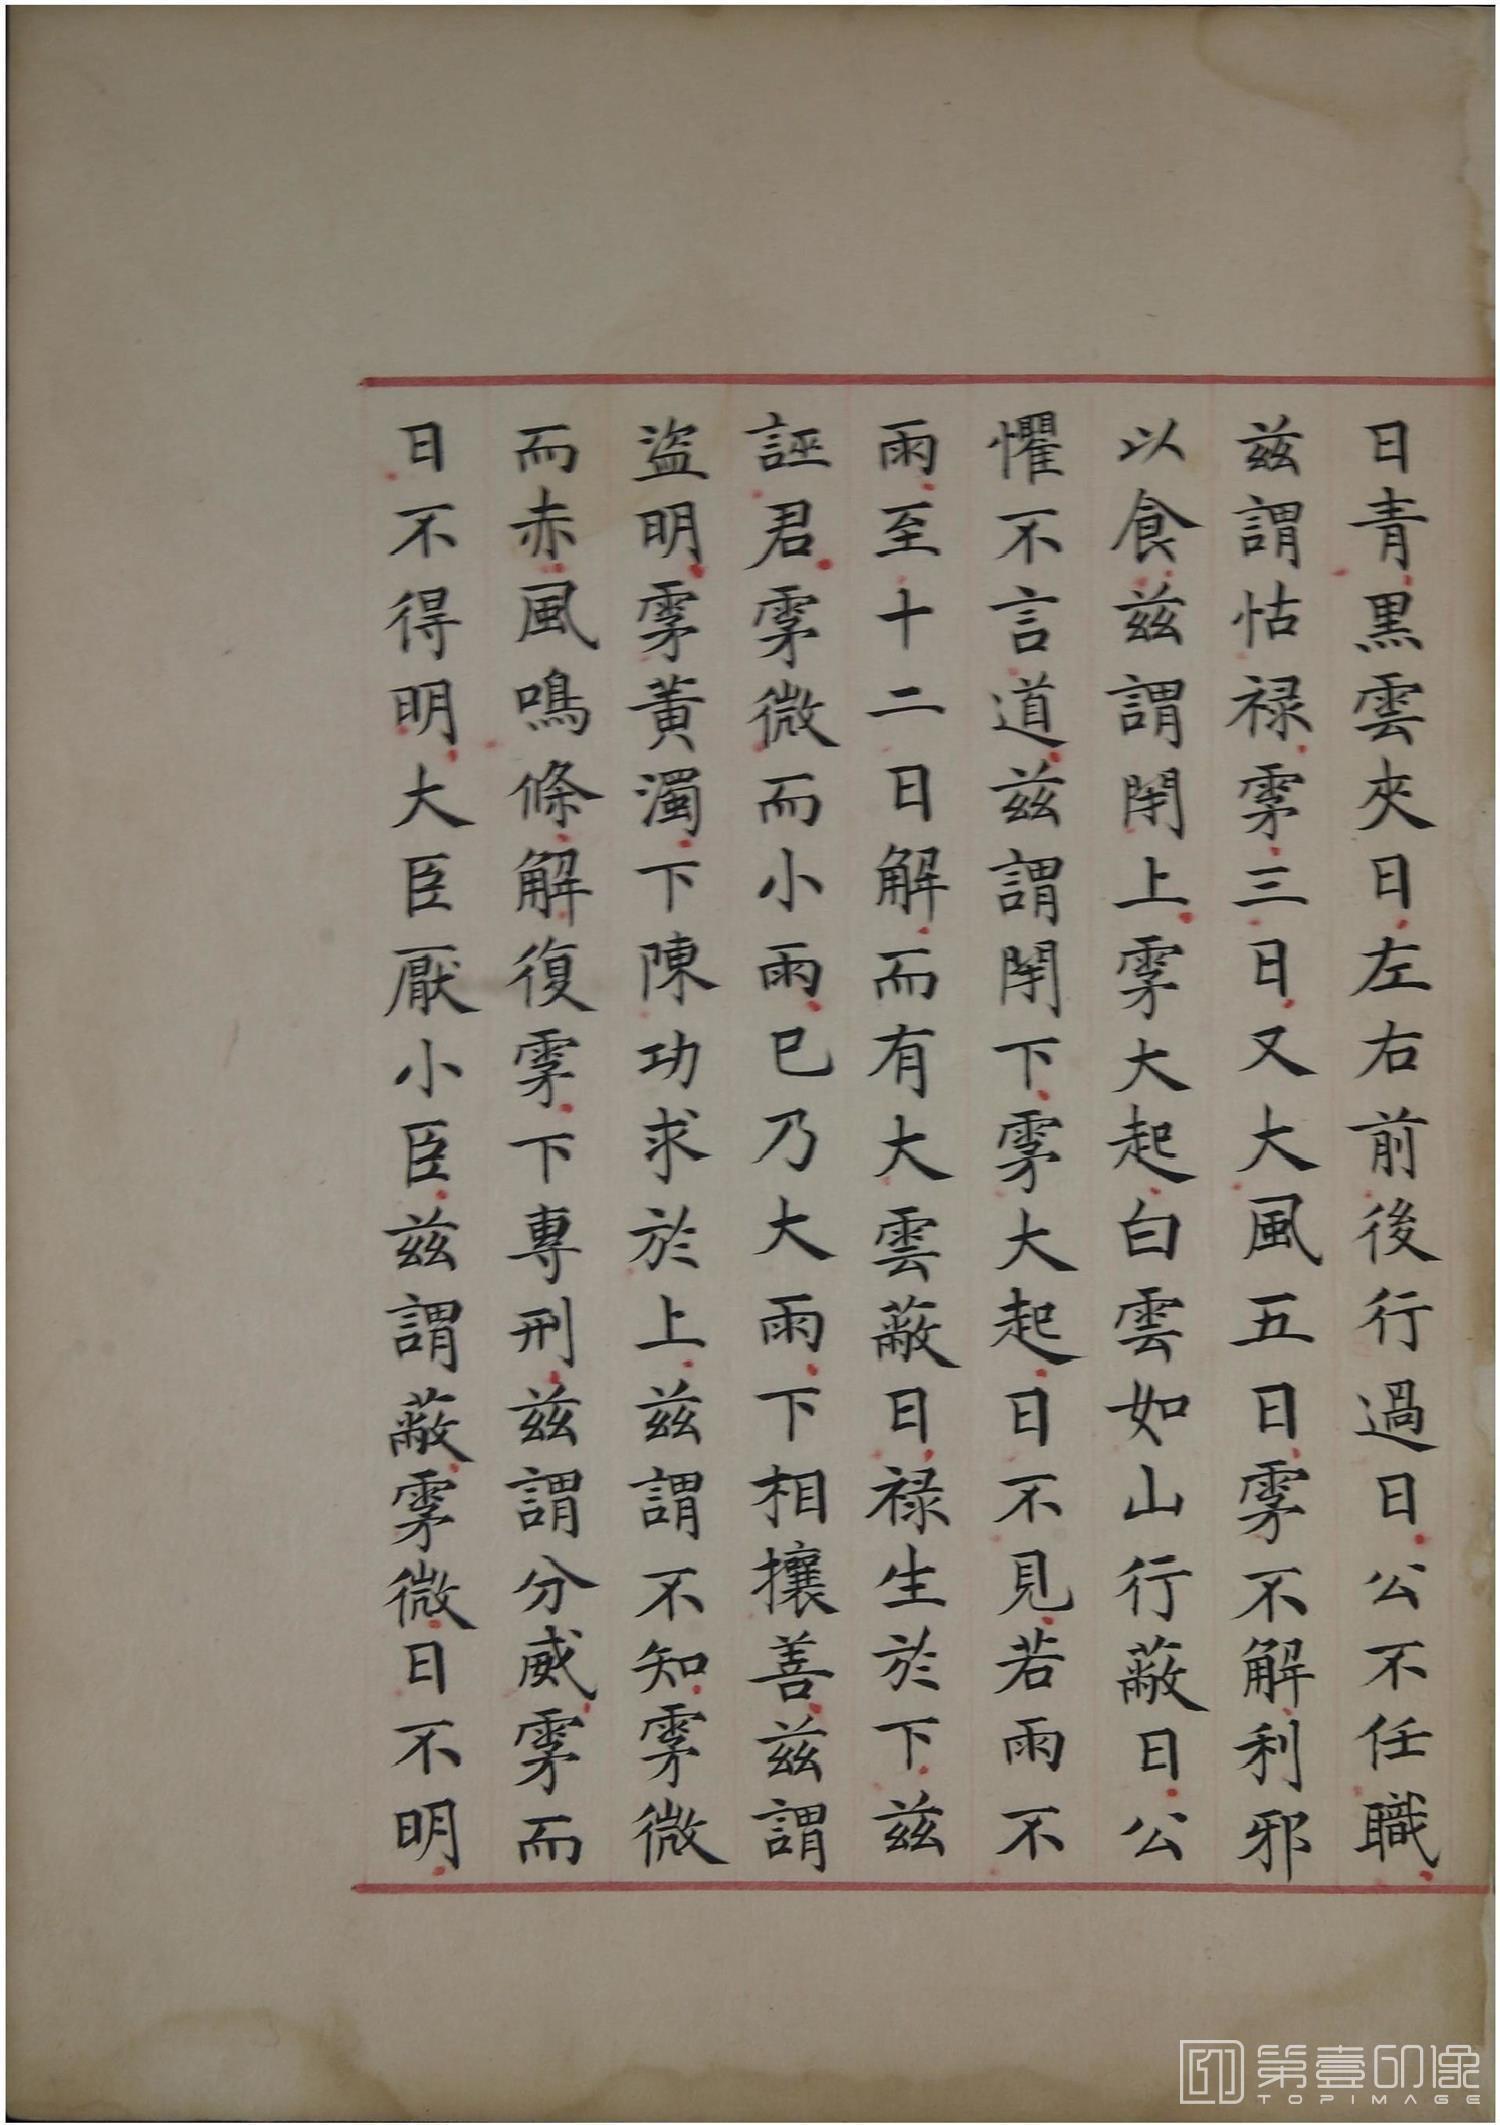 日青黑雲夾日左右前後行過日公不任職
兹謂怙禄雺三日又大風五日雺不解利邪
以食兹謂閉上雺大起白雲如山行蔽日公
懼不言道兹謂閉下雺大起日不見若雨不
雨至十二日解而有大雲蔽日禄生於下兹
誣君雺微而小雨巳乃大雨下相攘善兹謂
盜明雺黃濁下陳功求於上兹謂不知雺微
而赤風鳴條解復雺下專刑兹謂分威雺而
日不得明大臣厭小臣兹謂蔽雺微日不明
第壹印像
TOPIMAGE